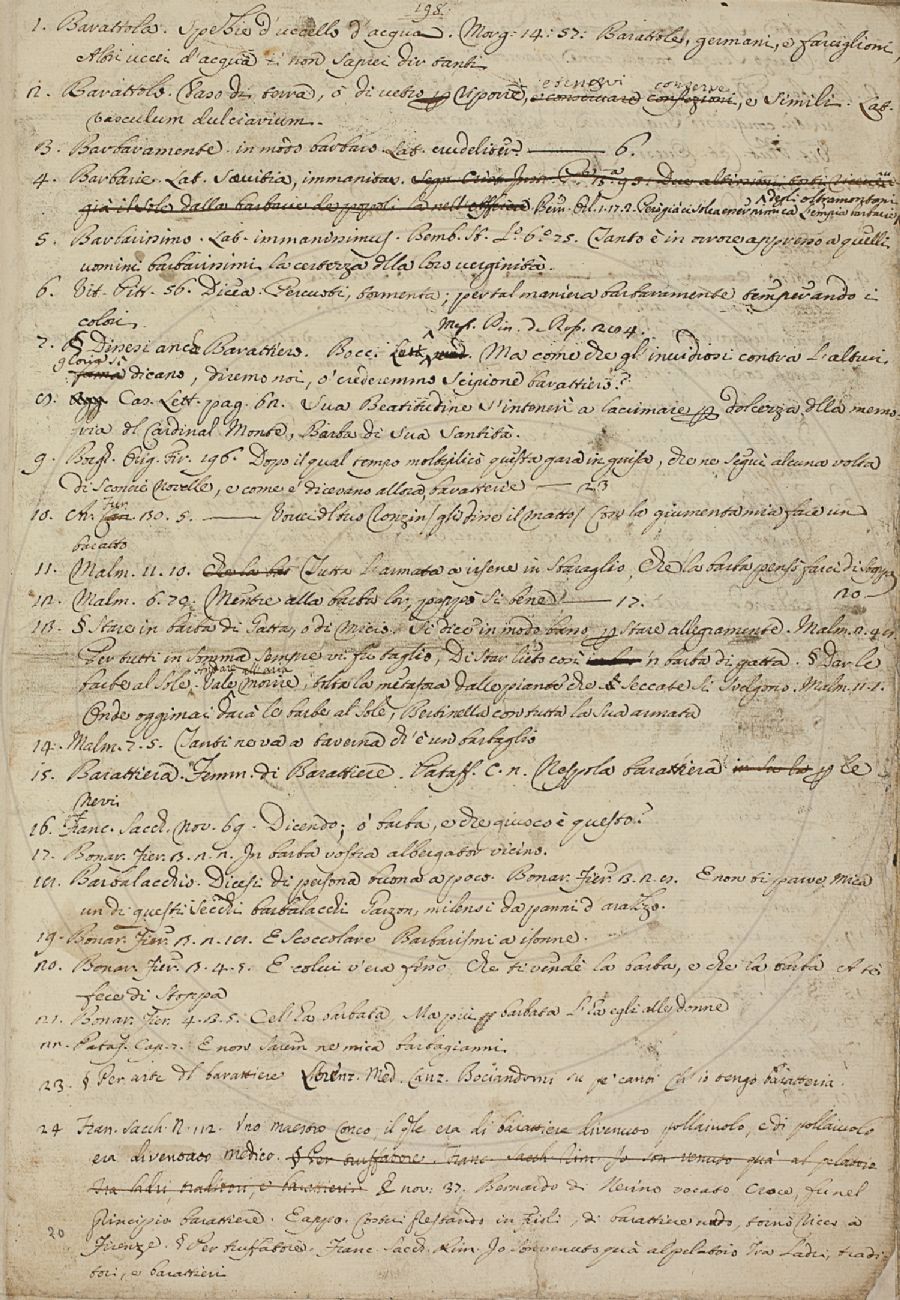 198.
1. Barattola. Spezie d'uccello d'acqua. Morg: 14: 57: Barattole, germani, e farciglioni,
Altri uccei d'acqua ch'i' non saprei dir tanti
2. Barattolo. Vaso di terra, ò di vetro p riporre, e tenervi conserve, e simili. Lat.
vasculum dulciarium.
3. Barbaramente. in mòdo barbaro. Lat. crudeliter. ——— 6.
4. Barbarie. Lat. Sævitia, immanitas.
già il Sole dalla barbarie de popoli
5. Barbarissimo. Lat. immanissimus. Bemb. St. L.º 6.º 75. Tanto è in orrore appresso a quelli
uomini barbarissimi la certezza dlla loro verginità.
6. Vit. Pitt. 56. Dicea. Percuoti, tormenta; per tal maniera barbaramente temperando i
colori.
7. § Dicesi anche Barattiero. Bocc. Lett. Mess. Pin. d. Ross. 284. Ma come che gl'invidiosi contra l'altrui
gloria si dicano, diremo noi, o' crederemmo Scipione barattiero?
8. Cas. Lett. pag. 62. Sua Beatitudine s'intenerì a lacrimare p dolcezza dlla memo-
ria dl Cardinal Monte, Barba di Sua Santità.
9. Borgh. Orig. Fir. 196. Dopo il qual tempo moltiplicò questa gara in guisa, che ne seguì alcuna volta
di sconcie novelle, e come e' dicevano allora, baratterie — 23
10. Ar. Fur. 30. 5. ——— con la giumenta mia face un
baratto
11. Malm. 11. 10. Tutta l'armata a irsene in sbaraglio, Che la barba pensò farci di stoppa
20.
12. Malm. 6. 79. Mentre alla barba lor pappò sì bene —— 17.
13. § Stare in barba di Gatta, o di micio. Si dice in modo basso p stare allegramente. Malm. 2. 4
Per tutti in somma sempre vi fu taglio, Di star lieto così 'n barba di gatta. § Dar le
barbe al sole. Vale morire, tolta la metafora dalle piante che seccate si svelgono. Malm. 11. 1.
Onde oggimai darà le barbe al sole, Bertinella con tutta la sua armata
14. Malm. 7. 5. Tanti ne va a taverna ch'è un barbaglio
15. Barattiera. Femm. di Barattiere. Pataff. C. 2. Nespola barattiera p le
Nevi
16. Franc. Sacch. Nov. 69. Dicendo; o' barba, e che giuoco è questo?
17. Bonar. Fier. 3. 2. 2. In barba vostra albergator vicino.
18. Barbalacchio. Dicesi di persona buona a poco. Bonar. Fier. 3. 2. 8. E non ti parve mica
un di questi secchi barbalacchi Garzon, milensi da panni d'arazzo.
19. Bonar. Fier. 3. 2. 18. E scoccolare Barbarismi a isonne.
20. Bonar. Fier. 3. 4. 5. E colui v'era fino Che ti vendè la barba, e che la barba A te
fece di stoppa
21. Bonar. Fier. 4. 3. 5. Cell'ha barbata Ma più p barbata l'ha egli alle donne
22. Pataf. Cap. 7. E non sarem ne mica barbagianni.
23. § Per arte dl barattiere Lorenz. Med. Canz. Bociandomi su pe' canti Ch'io tengo baratteria.
24 Fran. Sacch. N. 112. Uno maestro Conco, il qle era di barattiere divenuto pollaiuolo, e di pollaiuolo
era diventato medico. § Per truffatore Franc. Sacch. Rim. Io son venuto quà al pelatoio
Tra ladri traditori, e barattieri. E nov: 37. Bernardo di Nerino vocato Croce, fu nel
principio barattiere. E appo. Costui restando in Frioli, di barattiere nudo, tornò ricco a
Firenze. § Per truffatore. Franc. Sacch. Rim. Io son venuto quà al pelatoio Tra ladri, tradi-
tori, e barattieri
20